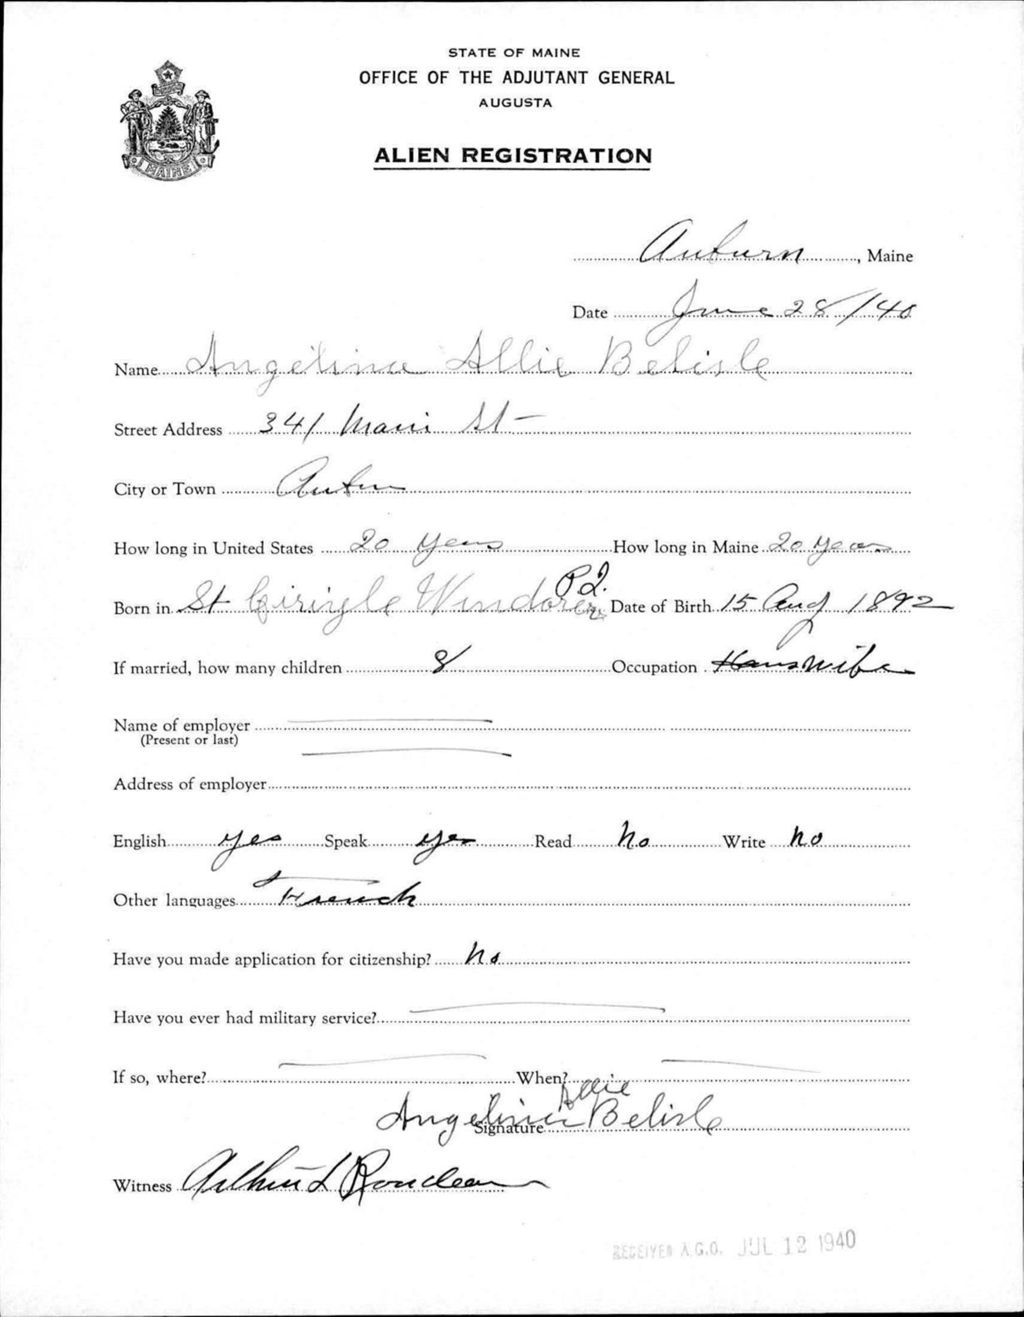 STATE OF MAINE
OFFICE OF THE ADJUTANT GENERAL
AUGUSTA
ALIEN REGISTRATION
MAINE
Auburn, Maine
Date June 28/40
Name Angelina Allie Belisle
Street Address 341 Main St
City or Town Auburn
How long in United States 20 years How long in Maine 20 years
Born in St P.Q. Date of Birth 15 Aug 1892
If married, how many children 8 Occupation Houswife
Name of employer
(Present or last)
Address of employer
English yes Speak yes Read No Write No
Other languages French
Have you made application for citizenship? No
Have you ever had military service?
If so, where? When?
Angelina Allie Belisle
Signature
Witness Arthur L Rondeau
RECEIVED A.G.O. JUL 12 1940